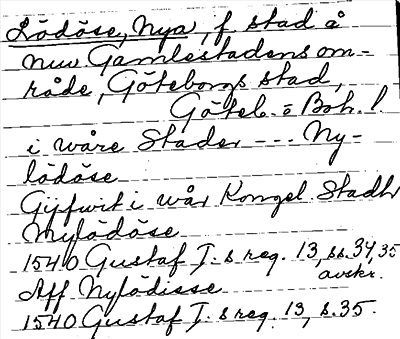 Lödöse, Nya, f. stad å
nuv. Gamlestadens om-
råde, Göteborgs stad,
Göteb. o Boh. l.
i wåre Stader --- Ny-
lödöse
Gifwit i wår Kongel Stadh
Nylödöse
1540 Gustaf I:s reg. 13, ss. 34, 35
avskr.
Aff Nylödisse
1540 Gustaf I:s reg. 13, s. 35.